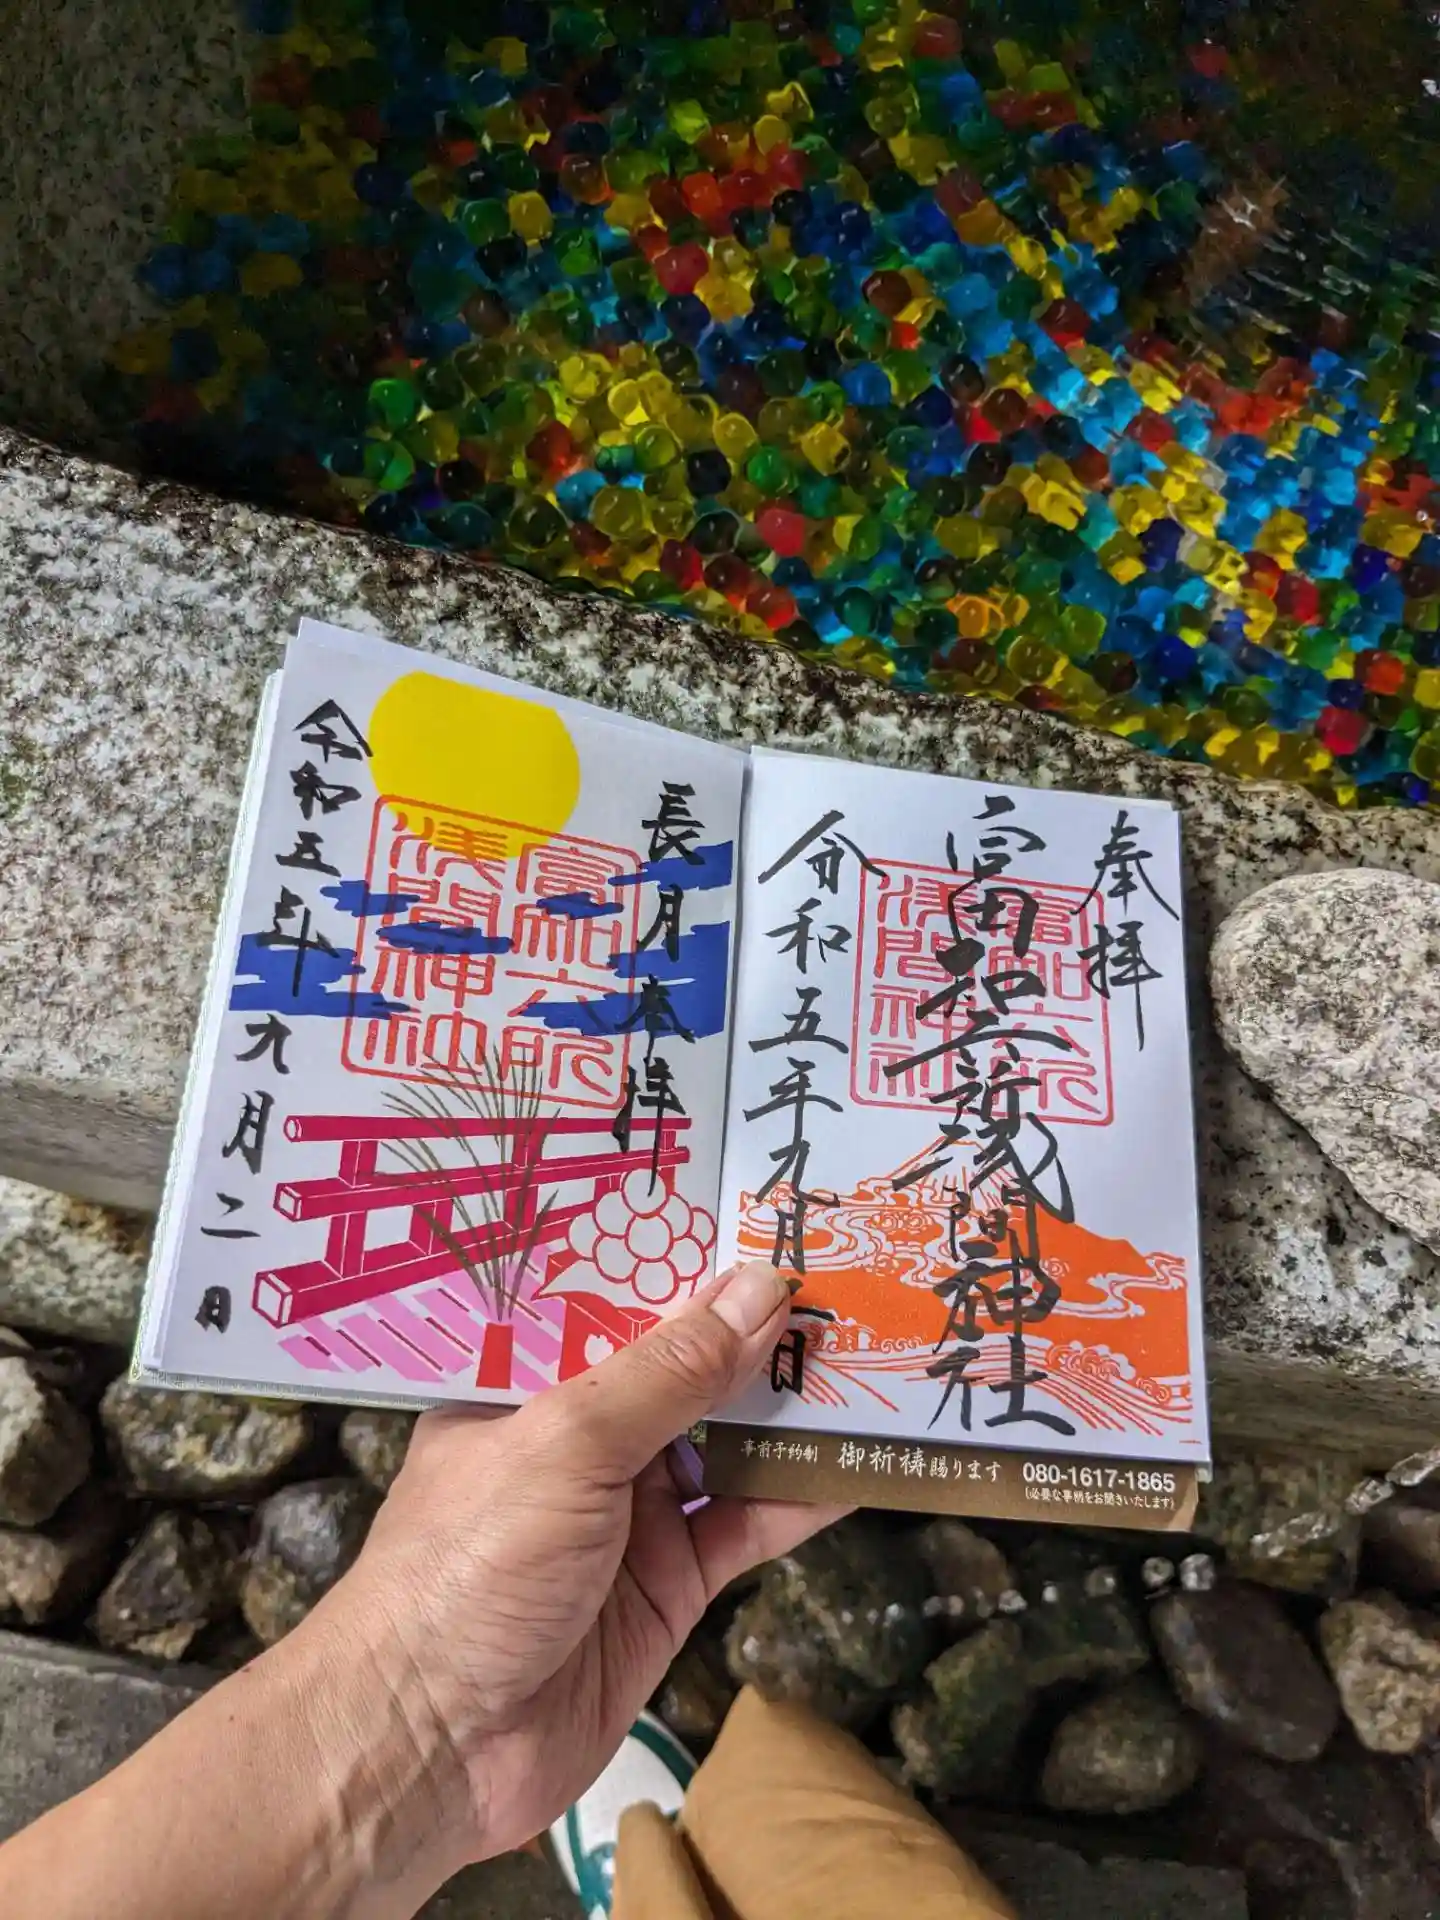 奉拝
富知六所浅間神社
富知六所
浅間神社
令和五年九月二日
長月奉拝
富知六所
浅間神社
令和五年九月二日
事前予約制 御祈祷賜ります 080-1617-1865
(必要な事柄をお聞きいたします)